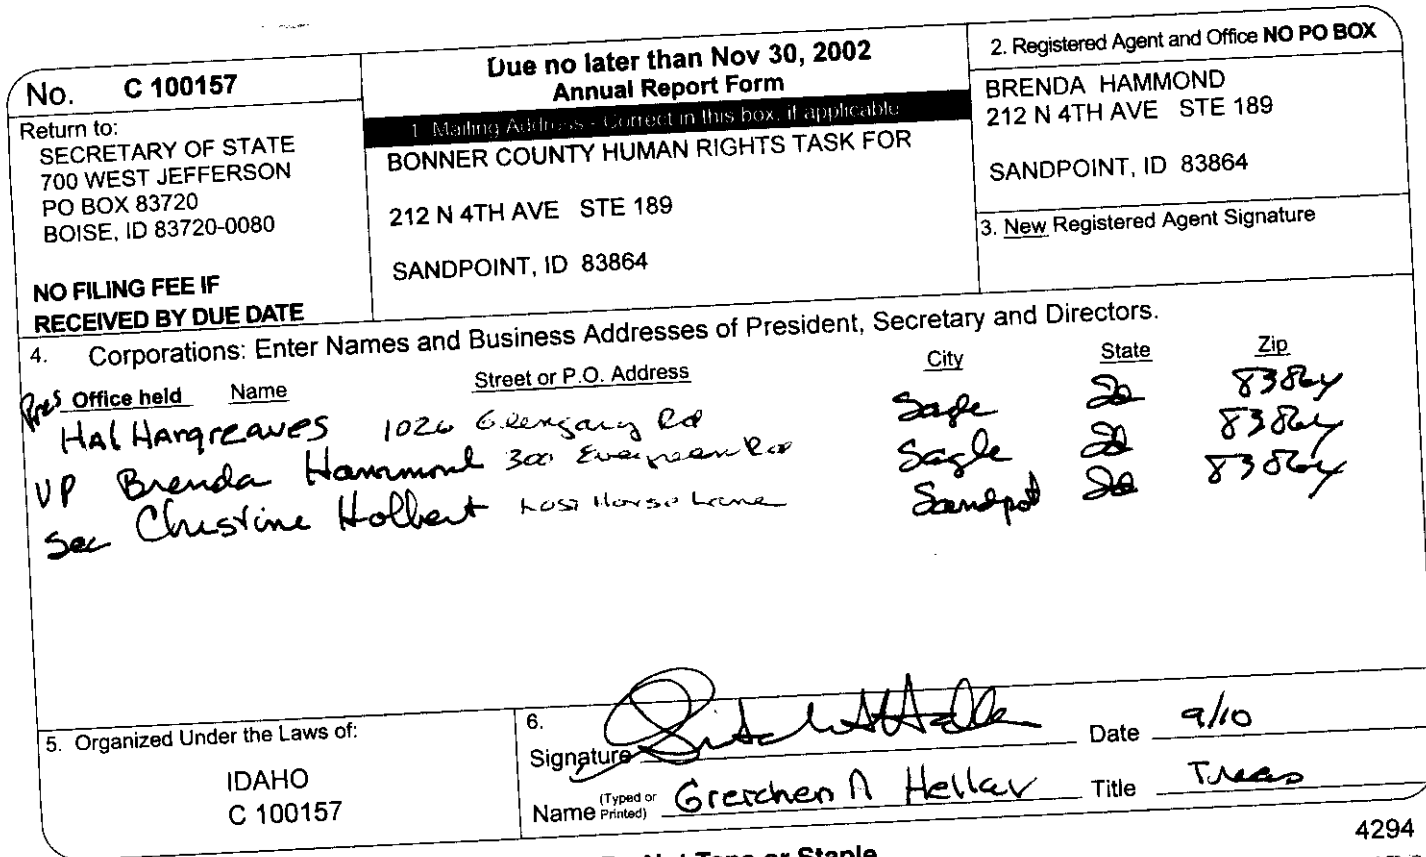 No. C 100157
Return to:
SECRETARY OF STATE
700 WEST JEFFERSON
PO BOX 83720
BOISE, ID 83720-0080
NO FILING FEE IF
RECEIVED BY DUE DATE
Due no later than Nov 30, 2002
Annual Report Form
1. Mailing Address - Correct in this box, if applicable
BONNER COUNTY HUMAN RIGHTS TASK FOR
212 N 4TH AVE STE 189
SANDPOINT, ID 83864
2. Registered Agent and Office NO PO BOX
BRENDA HAMMOND
212 N 4TH AVE STE 189
SANDPOINT, ID 83864
3. New Registered Agent Signature
4. Corporations: Enter Names and Business Addresses of President, Secretary and Directors.
Office held Name Street or P.O. Address City State Zip
Pres Hal Hargreaves 1026 Glengary Rd Sagle ID 83864
VP Brenda Hammond 300 Evergreen Sagle ID 83864
Sec Christine Holbert Lost Horse Lane Sandpot ID 83864
5. Organized Under the Laws of:
IDAHO
C 100157
6.
Signature Date 9/10
Name (Typed or Printed) Gretchen A Hellar Title Treas
4294
Do Not Tape or Staple